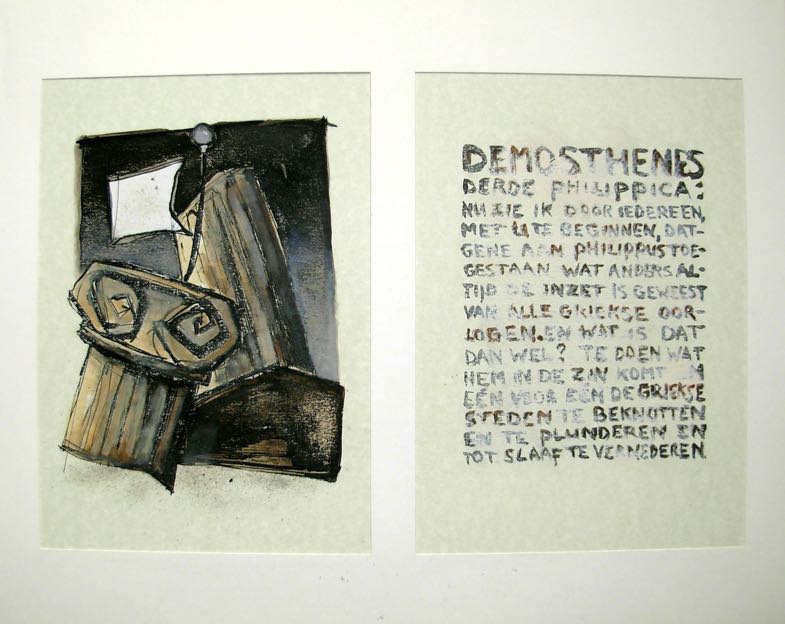 DEMOSTHENES
DERDE PHILIPPICA:
NU ZIE IK DOOR IEDEREEN,
MET U TE BEGINNEN, DAT-
GENE AAN PHILIPPUS TOE-
GESTAAN WAT ANDERS AL-
TIJD DE INZET IS GEWEEST
VAN ALLE GRIEKSE OOR-
LOGEN. EN WAT IS DAT
DAN WEL? TE DOEN WAT
HEM IN DE ZIN KOMT
EEN VOOR EEN DE GRIEKSE
STEDEN TE BEKNOTTEN
EN TE PLUNDEREN EN
TOT SLAAF TE VERNEDEREN.